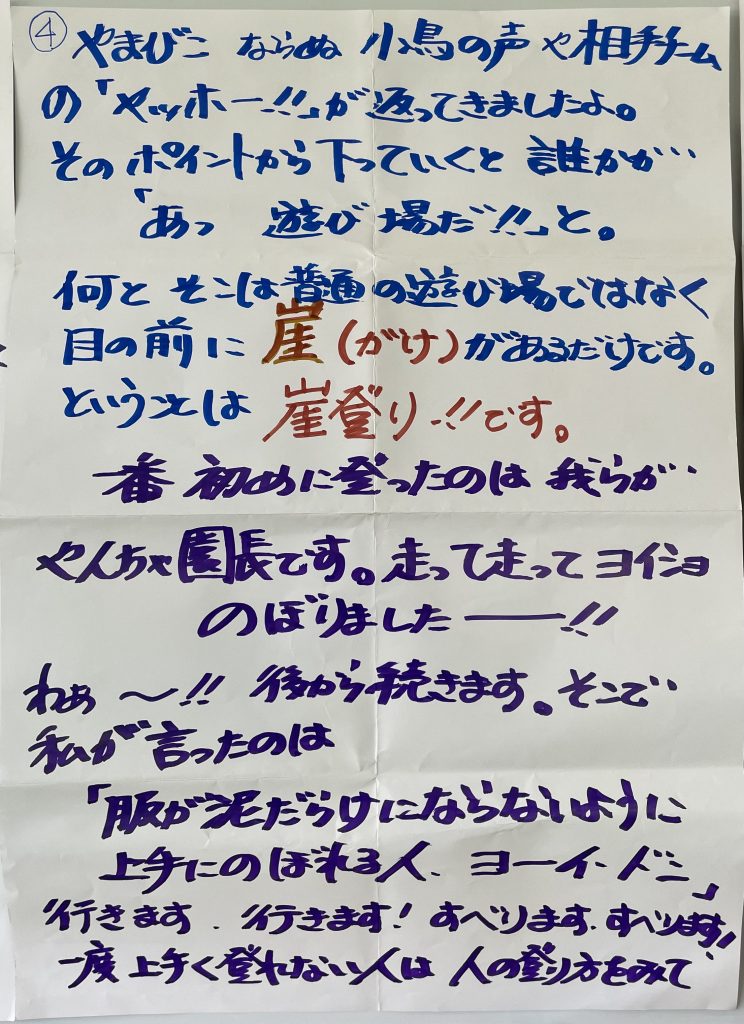 ④ やまびこ ならぬ 小鳥の声や相手チーム
の「ヤッホー!!」が返ってきましたよ。
そのポイントから下っていくと 誰かが…
「あっ 遊び場だ!!」と。
何と そこは普通の遊び場ではなく
目の前に 崖(がけ)があるだけです。
ということは 崖登りー!!です。
一番 初めに登ったのは 我らが…
やんちゃ園長です。走って走って ヨイショ
のぼりましたーー!!
わぁ 〜!! 後から続きます。そこで
私が言ったのは
「服が泥だらけにならないように
上手にのぼれる人、ヨーイ・ドン」
行きます、行きます! すべります、すべります!
一度上手く登れない人は 人の登り方をみて